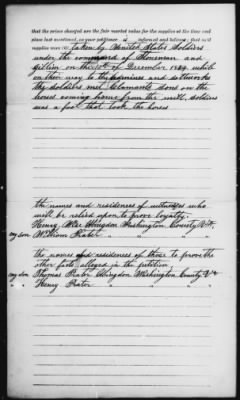 that the prices charged are the fair market value for the supplies at the time and
place last mentioned, as your petitioner is informed and believes; that said
supplies were taken by United States Soldiers
under the command of Stoneman and
Gillem on the of December 1864 while
on their way to the and saltworks
the soldiers met Claimants sons on the
horse coming home from the mill, soldiers
was a foot that took the horses
the names and residences of witnesses who
will be relied upon to prove loyalty.
Henry Abingdon Washington County Va,
my son William Prater " " "
the names and residences of those to prove the
other facts alleged in the petition
my son Thomas Prater Abingdon Washington County Va
" " Henry Prater " " "